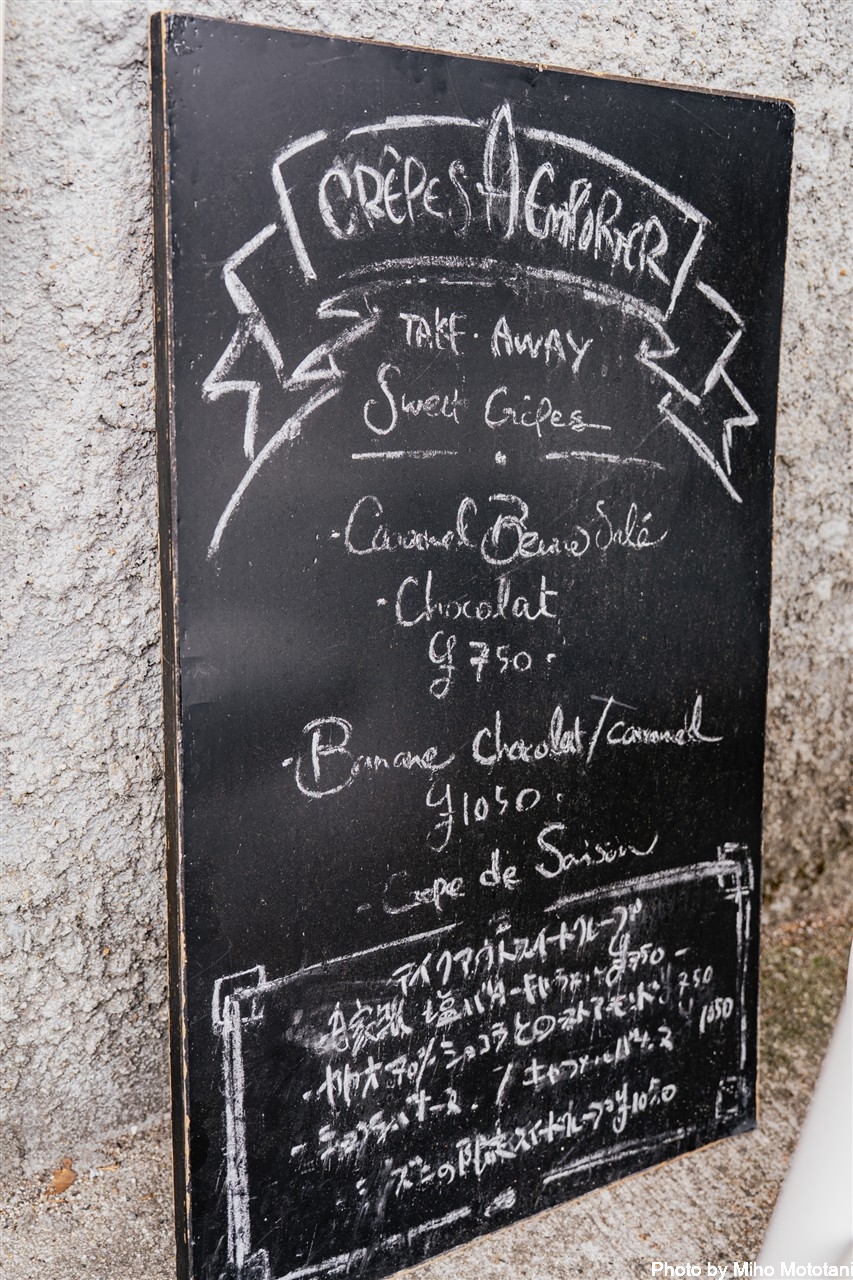 CRÊPES À EMPORTER
TAKE-AWAY
Sweet Crêpes
- Caramel Beurre Salé
- Chocolat
¥750-
- Banane chocolat/caramel
¥1050-
- Crepe de Saison
テイクアウトスイートクレープ
自家製 塩バターキャラメル ¥750-
・カカオ70%ショコラとローストアーモンド 750
- ショコラバナーヌ・/キャラメルバナーヌ 1050
スイートクレープ ¥1050
Photo by Miho Mototani